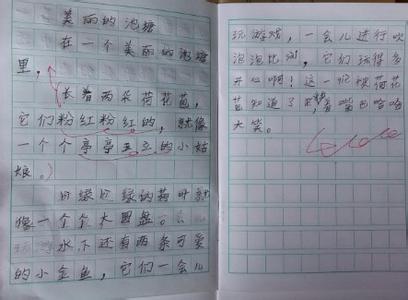 美丽的池塘
在一个美丽的池塘
里,
长着两朵荷花苞,
它们粉红粉红的,就像
一个个亭亭玉立的小姑
娘。
绿绿的荷叶就
像一个个大圆盘。
水下还有两条可爱
的小金鱼,它们一会儿
玩游戏,一会儿进行吹
泡泡比赛,它们玩得多
开心啊!这一切被荷花
苞知道了,着嘴巴哈哈
大笑。